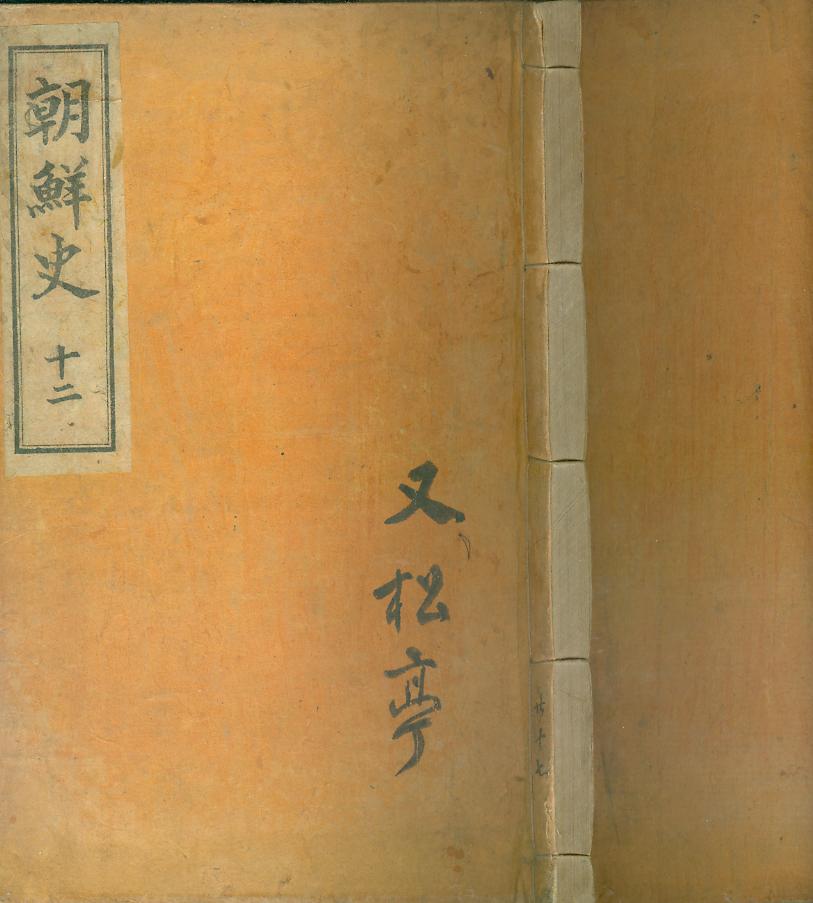 朝鮮史
十二
又松亭
共十七